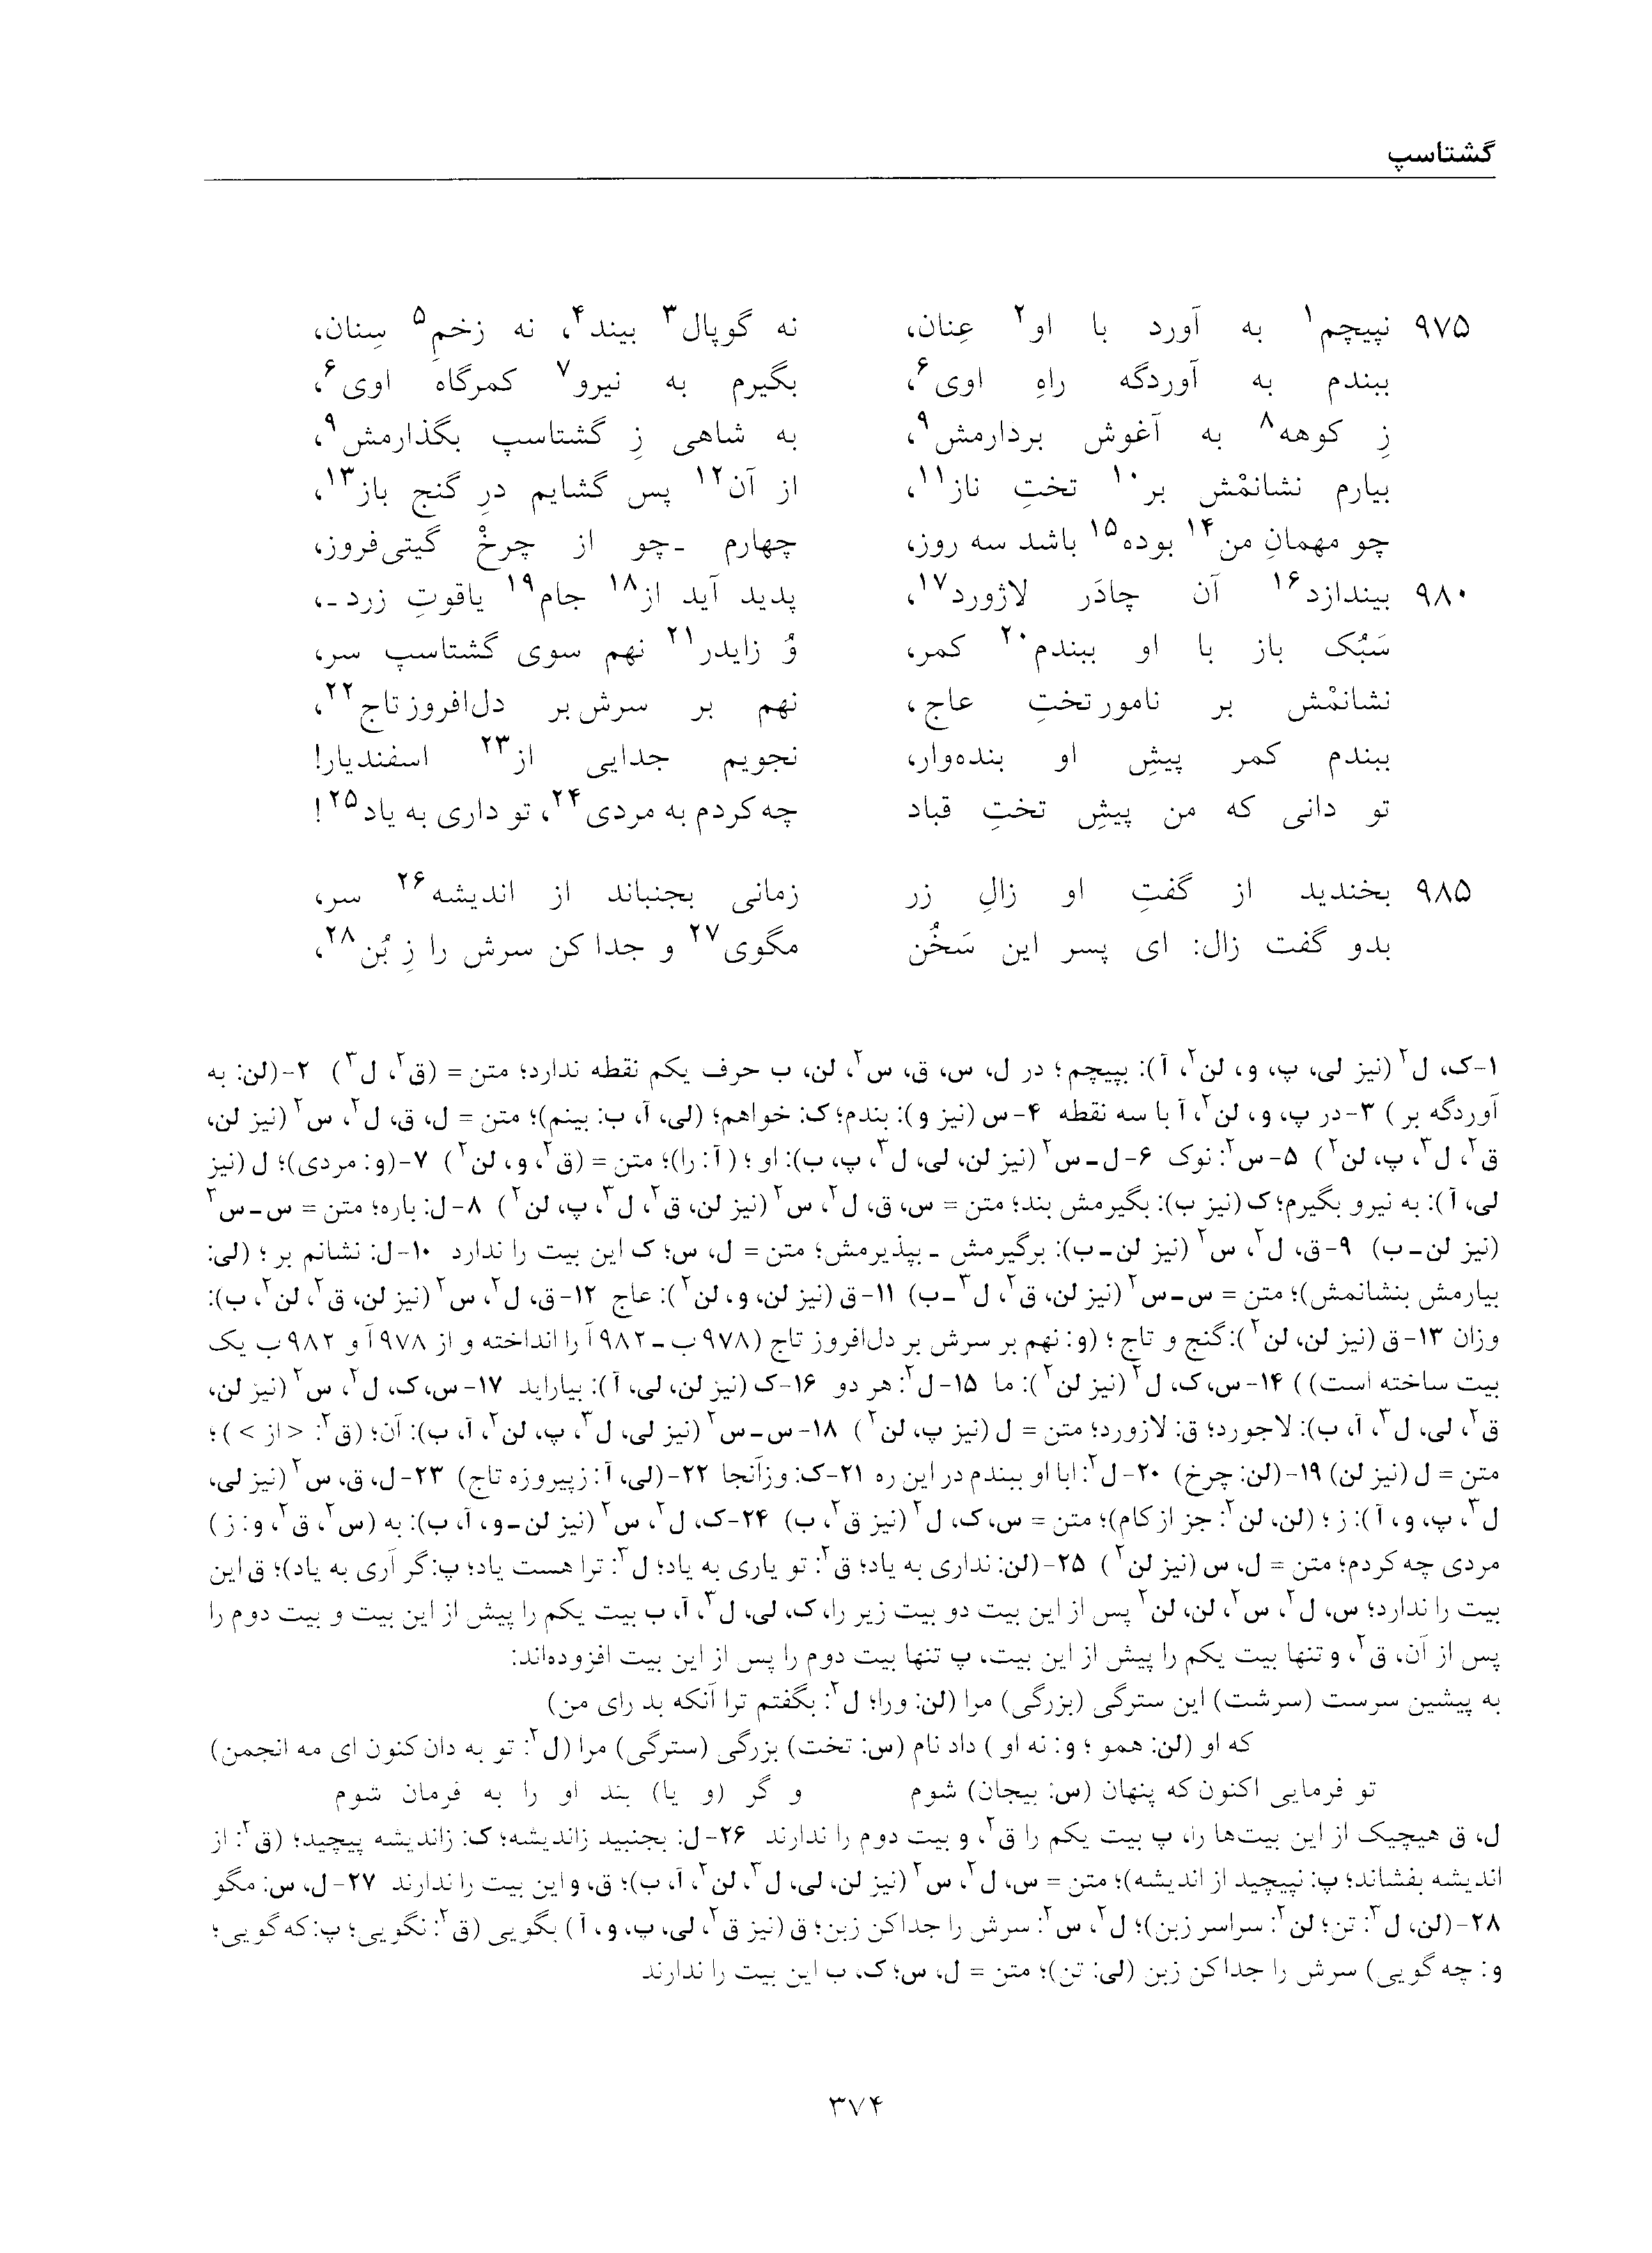 گشتاسپ
۹۷۵ نپیچم۱ به آورد با او۲ عِنان، نه گوپال۳ بیند۴، نه زخمِ۵ سِنان،
ببندم به آوردگه راهِ اوی۶، بگیرم به نیرو۷ کمرگاهَ اوی۶،
زِ کوهه۸ به آغوش بردارمش۹، به شاهی زِ گشتاسپ بگذارمش۹،
بیارم نشانمْش بر۱۰ تختِ ناز۱۱، از آن۱۲ پس گشایم درِ گنج باز۱۳،
چو مهمانِ من۱۴ بوده۱۵ باشد سه روز، چهارم -چو از چرخْ گیتی‌فروز،
۹۸۰ بیندازد۱۶ آن چادَر لاژورد۱۷، پدید آید از۱۸ جام۱۹ یاقوتِ زرد-،
سَبُک باز با او ببندم۲۰ کمر، وُ زایدر۲۱ نهم سوی گشتاسپ سر،
نشانمْش بر نامور تختِ عاج، نهم بر سرش بر دل‌افروز تاج۲۲،
ببندم کمر پیشِ او بنده‌وار، نجویم جدایی از۲۳ اسفندیار!
تو دانی که من پیشِ تختِ قباد چه کردم به مردی۲۴، تو داری به یاد۲۵!
۹۸۵ بخندید از گفتِ او زالِ زر زمانی بجنباند از اندیشه۲۶ سر،
بدو گفت زال: ای پسر این سَخُن مگوی۲۷ و جدا کن سرش را زِ بُن۲۸،
۱-ک، ل۲ (نیز لی، پ، و، لن۲، آ): بپیچم؛ در ل، س، ق، س۲، لن، ب حرف یکم نقطه ندارد؛ متن = (ق۲، ل۳) ۲-(لن: به
آوردگه بر) ۳-در پ، و، لن۲، آ با سه نقطه ۴-س (نیز و): بندم؛ ک: خواهم؛ (لی، آ، ب: بینم)؛ متن = ل، ق، ل۲، س۲ (نیز لن،
ق۲، ل۳، پ، لن۲) ۵-س۲: نوک ۶-ل-س۲ (نیز لن، لی، ل۳، پ، ب): او؛ (آ: را)؛ متن = (ق۲، و، لن۲) ۷-(و: مردی)؛ ل (نیز
لی، آ): به نیرو بگیرم؛ ک (نیز ب): بگیرمش بند؛ متن = س، ق، ل۲، س۲ (نیز لن، ق۲، ل۳، پ، لن۲) ۸-ل: باره؛ متن = س-س۲
(نیز لن-ب) ۹-ق، ل۲، س۲ (نیز لن-ب): برگیرمش - بپذیرمش؛ متن = ل، س؛ ک این بیت را ندارد ۱۰-ل: نشانم بر؛ (لی:
بیارمش بنشانمش)؛ متن = س-س۲ (نیز لن، ق۲، ل۳-ب) ۱۱-ق (نیز لن، و، لن۲): عاج ۱۲-ق، ل۲، س۲ (نیز لن، ق۲، لن۲، ب):
وزان ۱۳-ق (نیز لن، لن۲): گنج و تاج؛ (و: نهم بر سرش بر دل‌افروز تاج (۹۷۸ب-۹۸۲آ را انداخته و از ۹۷۸آ و ۹۸۲ب یک
بیت ساخته است)) ۱۴-س، ک، ل۲ (نیز لن۲): ما ۱۵-ل۲: هر دو ۱۶-ک (نیز لن، لی، آ): بیاراید ۱۷-س، ک، ل۲، س۲ (نیز لن،
ق۲، لی، ل۳، آ، ب): لاجورد؛ ق: لازورد؛ متن = ل (نیز پ، لن۲) ۱۸-س-س۲ (نیز لی، ل۳، پ، لن۲، آ، ب): آن؛ (ق۲: <از>)؛
متن = ل (نیز لن) ۱۹-(لن: چرخ) ۲۰-ل۲: ابا او ببندم در این ره ۲۱-ک: وزآنجا ۲۲-(لی، آ: زپیروزه تاج) ۲۳-ل، ق، س۲ (نیز لی،
ل۳، پ، و، آ): ز؛ (لن، لن۲: جز از کام)؛ متن = س، ک، ل۲ (نیز ق۲، ب) ۲۴-ک، ل۲، س۲ (نیز لن-و، آ، ب): به (س۲، ق۲، و: ز)
مردی چه کردم؛ متن = ل، س (نیز لن۲) ۲۵-(لن: نداری به یاد؛ ق۲: تو یاری به یاد؛ ل۳: ترا هست یاد؛ پ: گر آری به یاد)؛ ق این
بیت را ندارد؛ س، ل۲، س۲، لن، لن۲ پس از این بیت دو بیت زیر را، ک، لی، ل۳، آ، ب بیت یکم را پیش از این بیت و بیت دوم را
پس از آن، ق۲، و تنها بیت یکم را پیش از این بیت، پ تنها بیت دوم را پس از این بیت افزوده‌اند:
به پیشین سرست (سرشت) این سترگی (بزرگی) مرا (لن: ورا؛ ل۲: بگفتم ترا آنکه بد رای من)
که او (لن: همو؛ و: نه او) داد نام (س: تخت) بزرگی (سترگی) مرا (ل۲: تو به دان کنون ای مه انجمن)
تو فرمایی اکنون که پنهان (س: بیجان) شوم و گر (و یا) بند او را به فرمان شوم
ل، ق هیچیک از این بیت‌ها را، پ بیت یکم را ق۲، و بیت دوم را ندارند ۲۶-ل: بجنبید زاندیشه؛ ک: زاندیشه پیچید؛ (ق۲: از
اندیشه بفشاند؛ پ: نپیچید از اندیشه)؛ متن = س، ل۲، س۲ (نیز لن، لی، ل۳، لن۲، آ، ب)؛ ق، و این بیت را ندارند ۲۷-ل، س: مگو
۲۸-(لن، ل۳: تن؛ لن۲: سراسر زبن)؛ ل۲، س۲: سرش را جدا کن زبن؛ ق (نیز ق۲، لی، پ، و، آ) بگویی (ق۲: نگویی؛ پ: که گویی؛
و: چه گویی) سرش را جدا کن زبن (لی: تن)؛ متن = ل، س؛ ک، ب این بیت را ندارند
۳۷۴